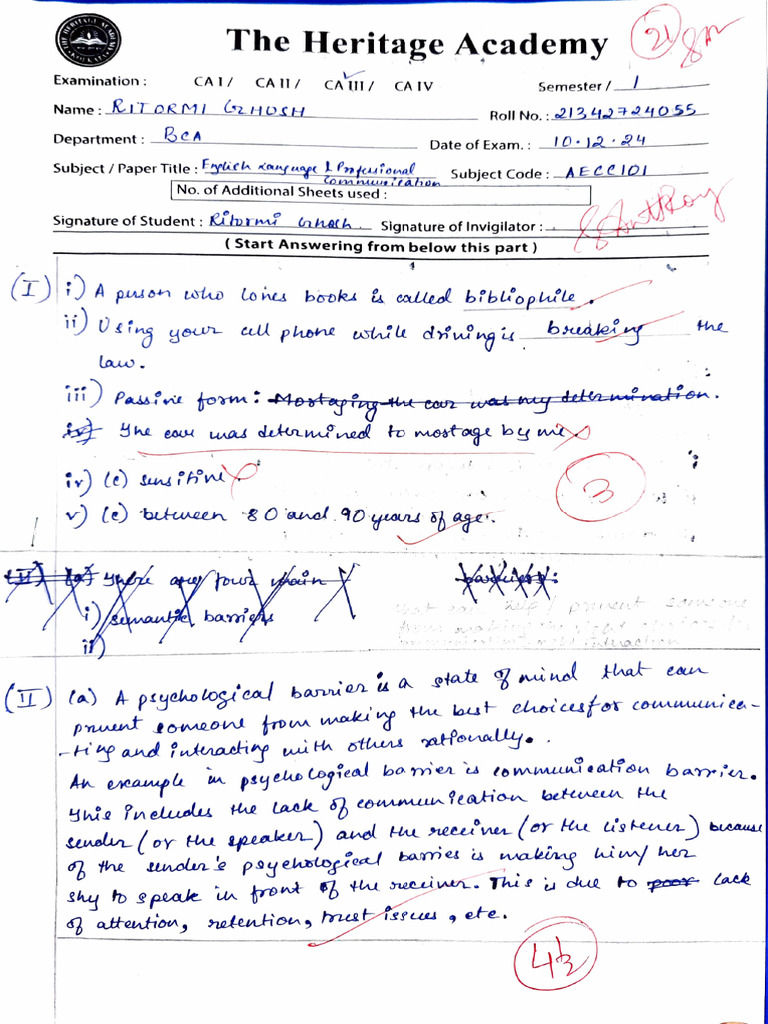 THE HERITAGE ACADEMY
KOLKATA
The Heritage Academy
21
Examination : CA I / CA II / CA III / CA IV Semester / 1
Name : RITORMI GHOSH Roll No. : 21342724055
Department : BCA Date of Exam. : 10.12.24
Subject / Paper Title : English Language & Professional Communication Subject Code : AECC101
No. of Additional Sheets used :
Signature of Student : Ritormi Ghosh. Signature of Invigilator :
( Start Answering from below this part )
(I) i) A person who loves books is called bibliophile.
ii) Using your cell phone while driving is breaking the
law.
iii) Passive form: Mostaging the car was my determination.
iv) The car was determined to mostage by me.
iv) (c) sensitive.
3
v) (c) between 80 and 90 years of age.
(II) (a) There are four main barriers:
i) semantic barriers
ii)
(II) (a) A psychological barrier is a state of mind that can
prevent someone from making the best choices for communica-
-ting and interacting with others rationally.
An example in psychological barrier is communication barrier.
This includes the lack of communication between the
sender (or the speaker) and the receiver (or the listener) because
of the sender's psychological barries is making him/her
shy to speak in front of the receiver. This is due to poor lack
of attention, retention, trust issues, etc.
4½